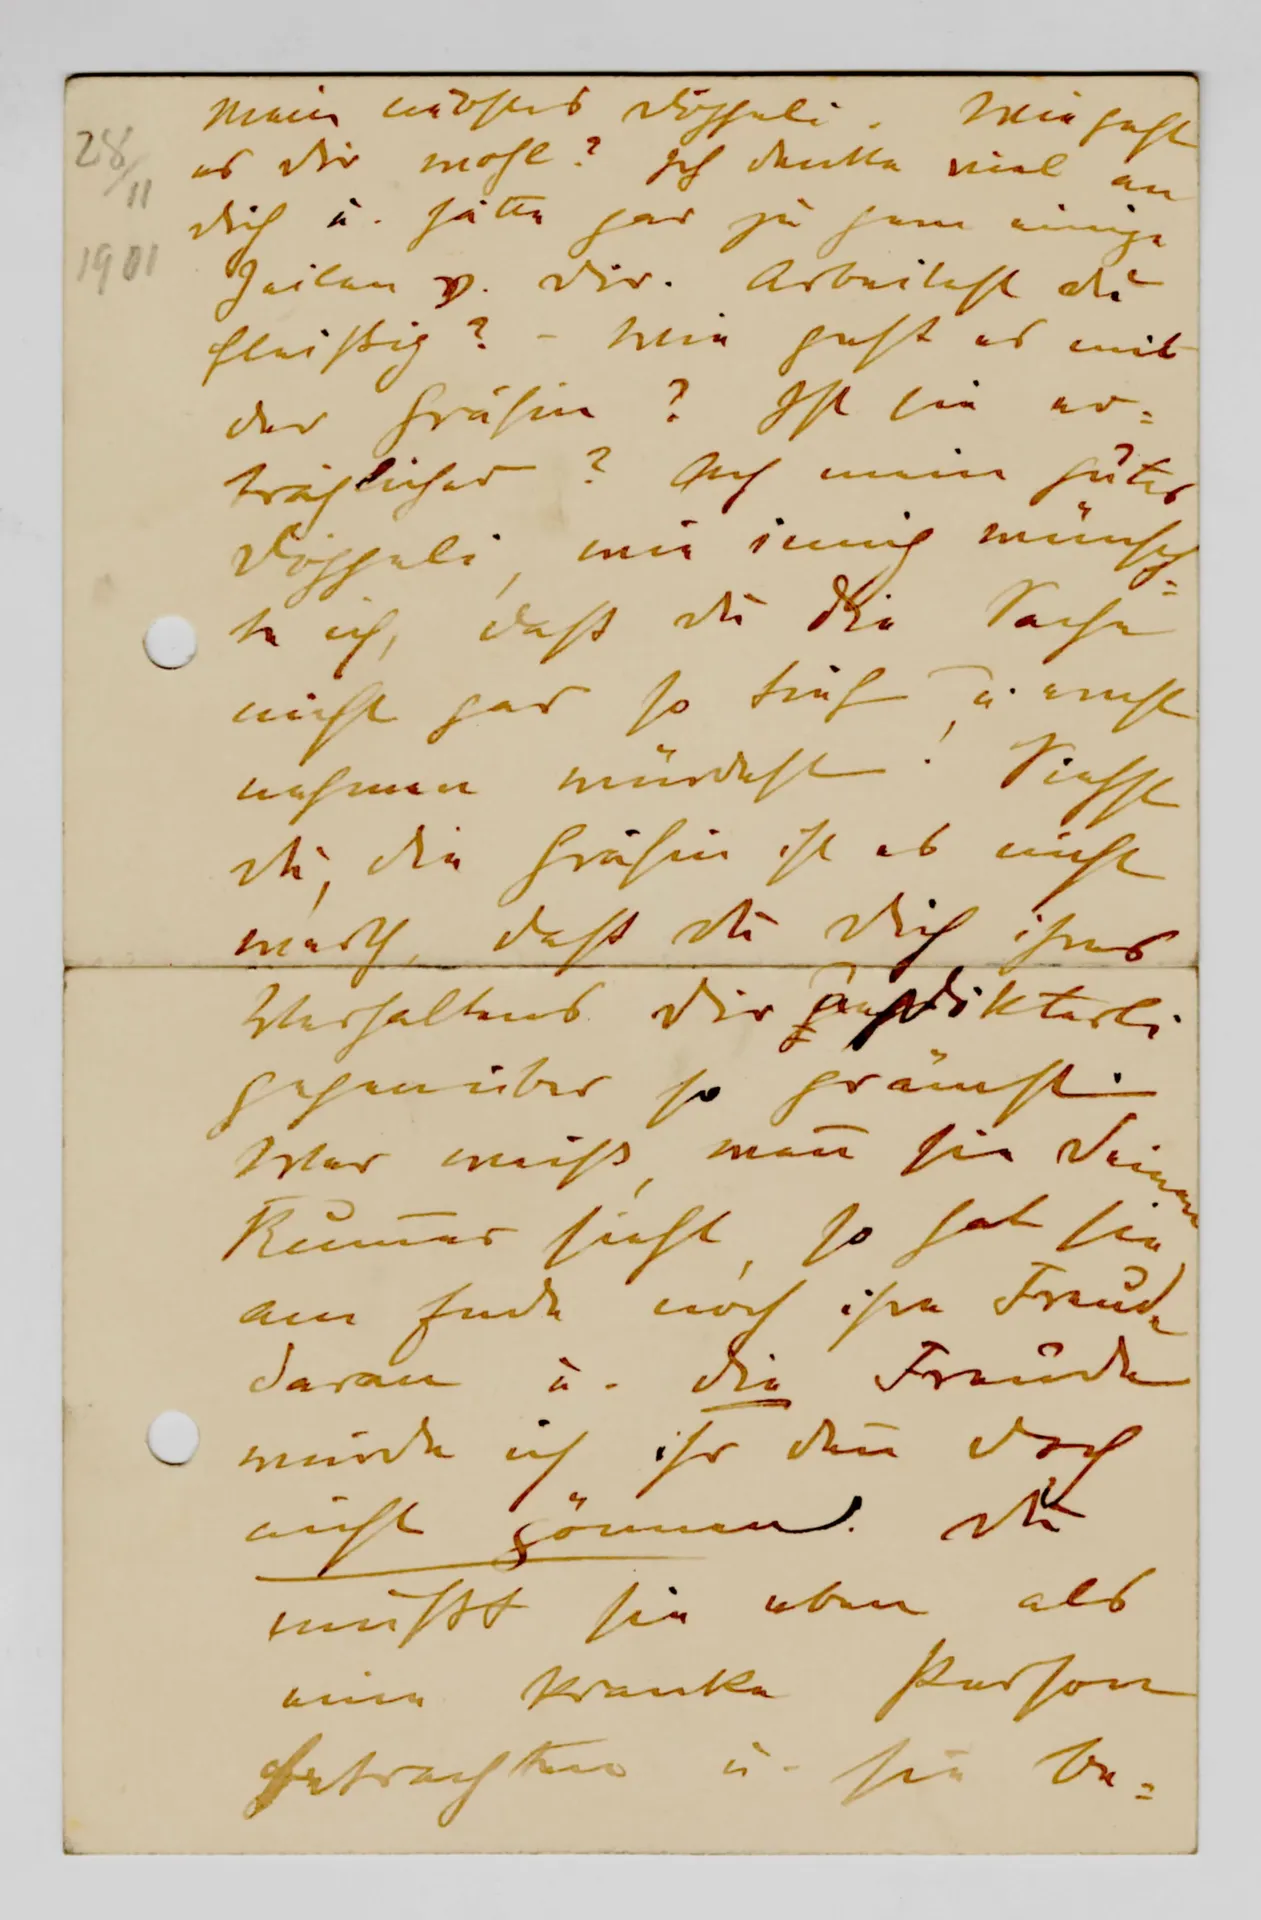 28/11
1901
Mein liebstes Döggeli. Wie geht
es Dir wohl? Ich denke viel an
Dich u. hätte gar zu gern einige
Zeilen v. Dir. Arbeitest Du
fleißig? – Wie geht es mit
der Gräfin? Ist sie er=
träglicher? Ach mein gutes
Döggeli, wie innig wünsch=
te ich, daß Du die Sache
nicht gar so tief u. ernst
nehmen würdest! Siehst
Du, die Gräfin ist es nicht
wert, daß Du Dich ihres
Verhaltens Dir
gegenüber so grämst.
Wer weiß, wañ sie Deinen
Kum̄er sieht, so hat sie
am Ende noch ihre Freude
daran u. die Freude
würde ich ihr dañ doch
nicht gönnen. Du
mußt sie eben als
eine kranke Person
betrachten u. sie be=